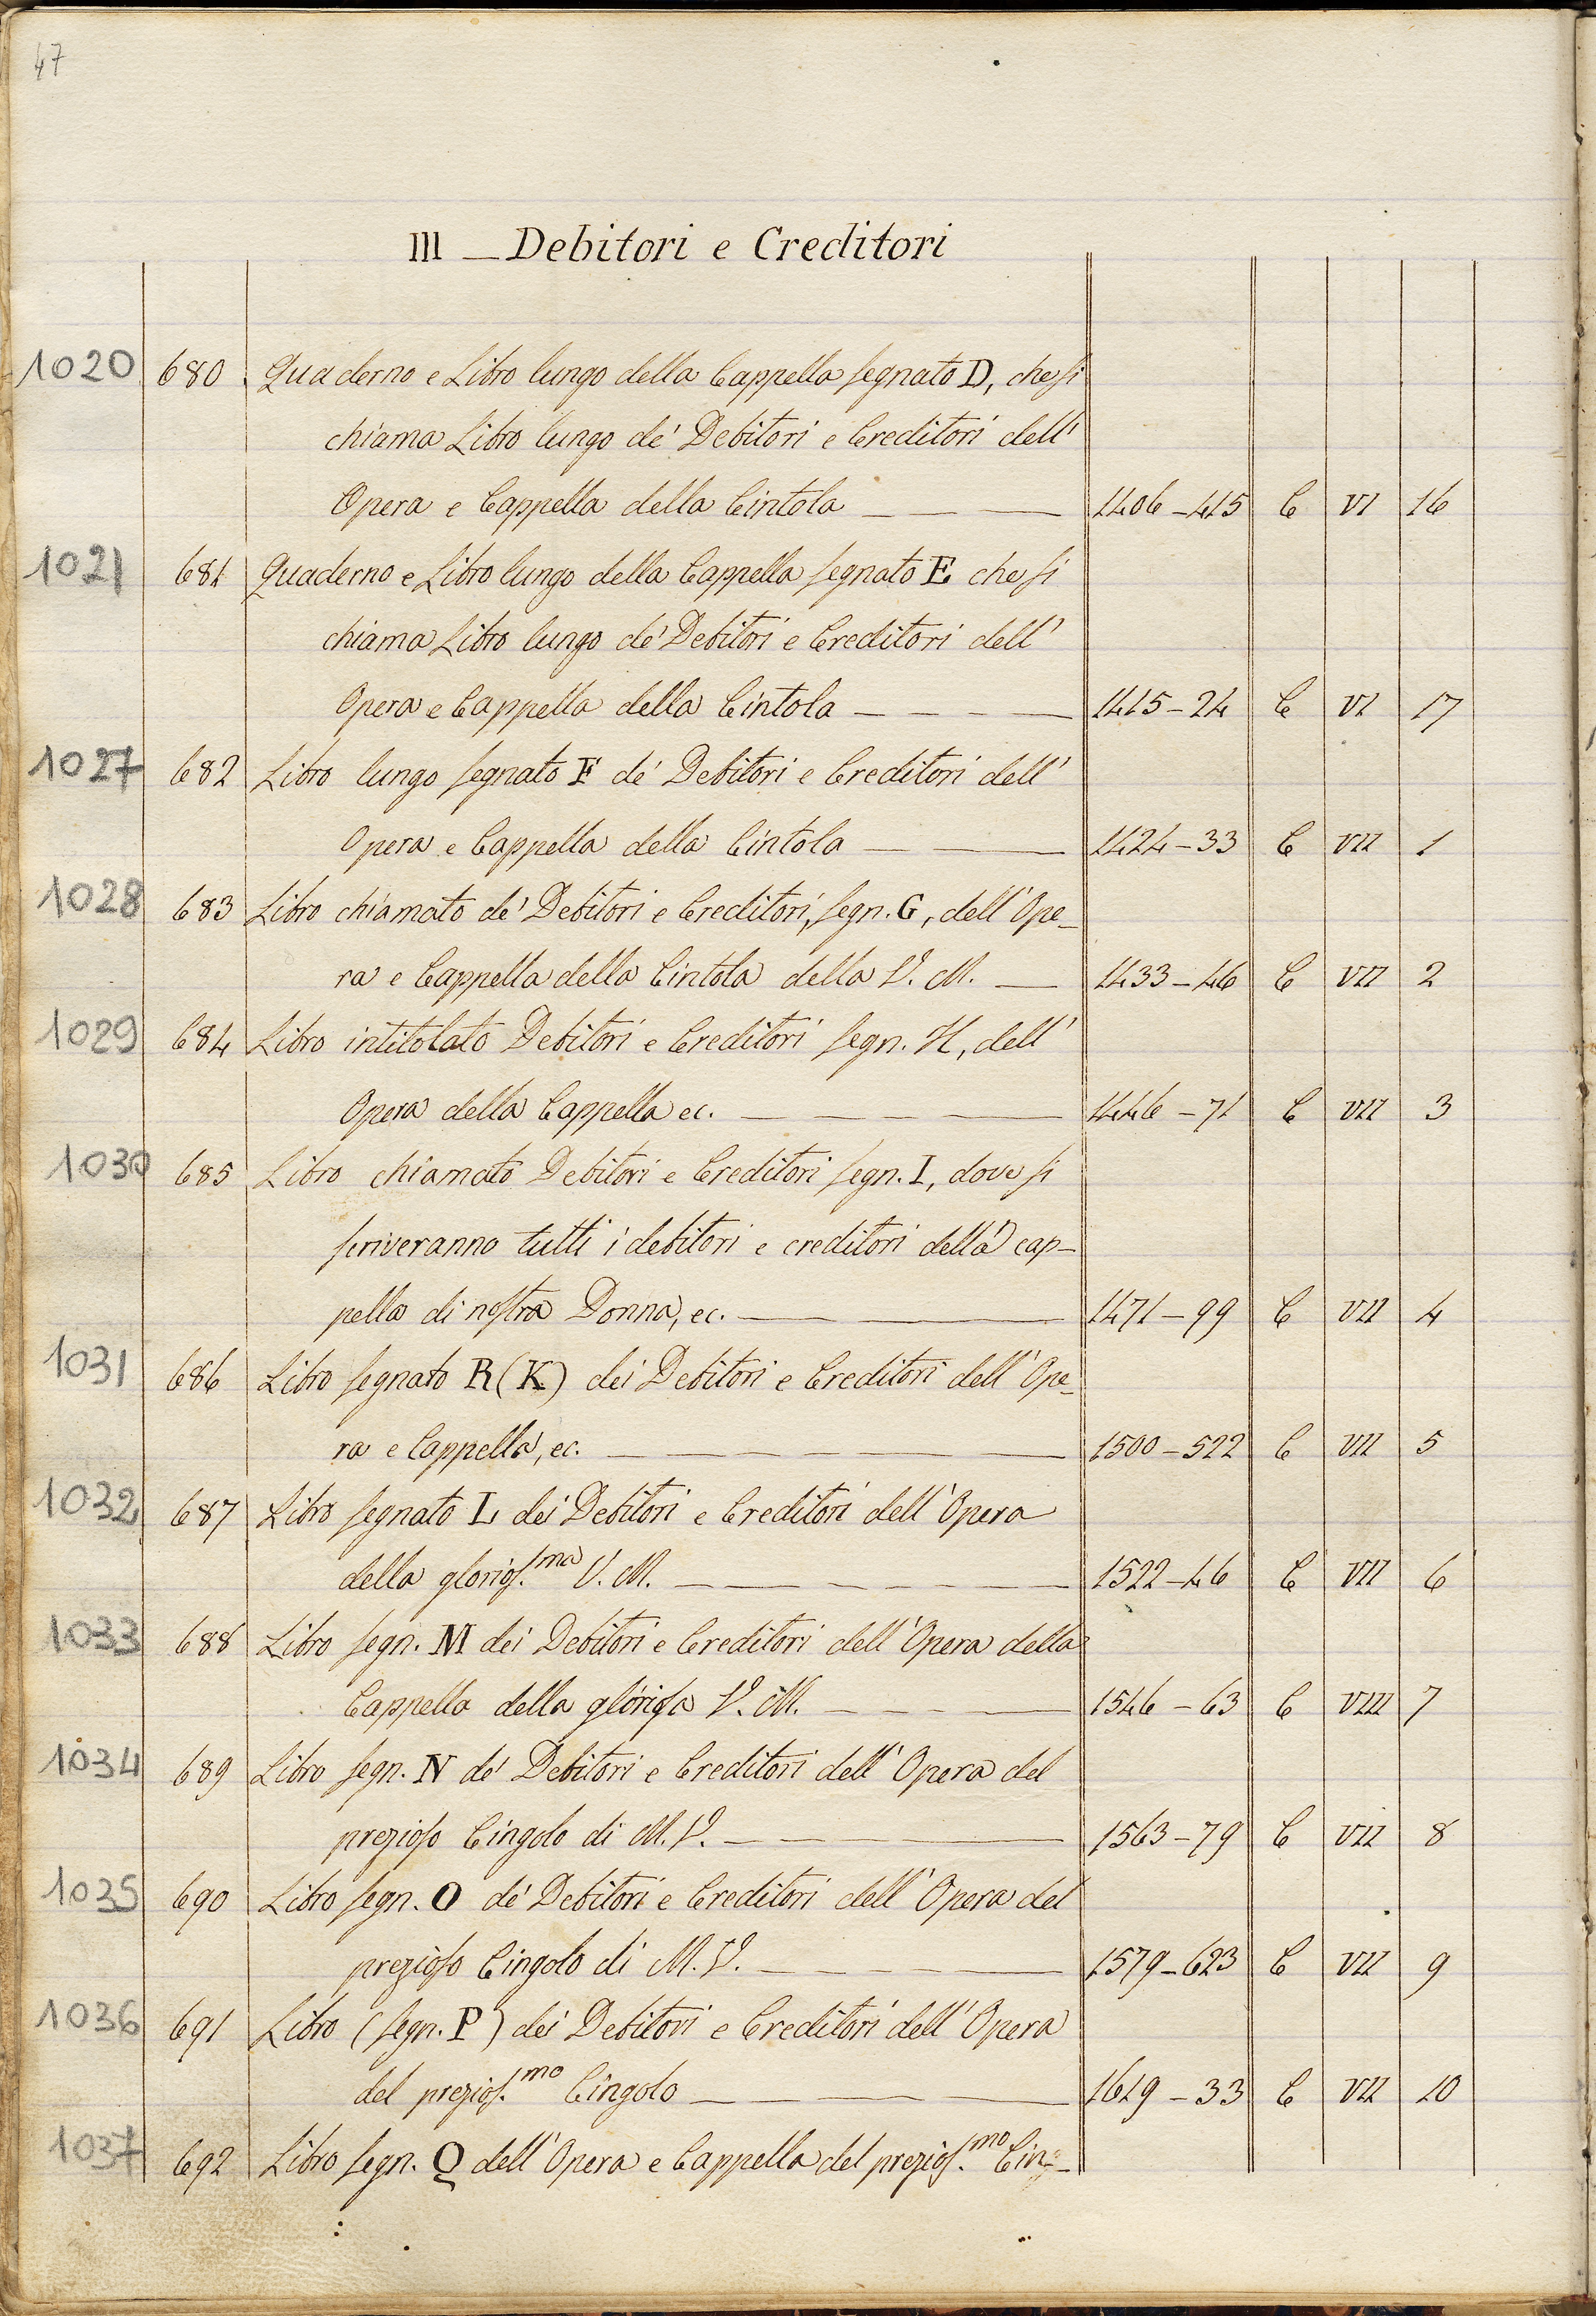 47
III — Debitori e Creditori
1020 680 Quaderno e Libro lungo della Cappella segnato D, che si
chiama Libro lungo de' Debitori e Creditori dell'
Opera e Cappella della Cintola — — — 1406–415 C VI 16
1021 681 Quaderno e Libro lungo della Cappella segnato E che si
chiama Libro lungo de' Debitori e Creditori dell'
Opera e Cappella della Cintola — — — — 1415–24 C VI 17
1027 682 Libro lungo segnato F de' Debitori e Creditori dell'
Opera e Cappella della Cintola — — — 1424–33 C VII 1
1028 683 Libro chiamato de' Debitori e Creditori, segn. G, dell'Ope-
ra e Cappella della Cintola della V. M. — 1433–46 C VII 2
1029 684 Libro intitolato Debitori e Creditori segn. H, dell'
Opera della Cappella ec. — — — — 1446–71 C VII 3
1030 685 Libro chiamato Debitori e Creditori segn. I, dove si
scriveranno tutti i debitori e creditori della cap-
pella di nostra Donna, ec. — — — 1471–99 C VII 4
1031 686 Libro segnato R (K) dei Debitori e Creditori dell'Ope-
ra e Cappella, ec. — — — — — 1500–522 C VII 5
1032 687 Libro segnato L dei Debitori e Creditori dell'Opera
della glorios.ma V. M. — — — — — 1522–46 C VII 6
1033 688 Libro segn. M dei Debitori e Creditori dell'Opera della
Cappella della gloriosa V. M. — — — — 1546–63 C VIII 7
1034 689 Libro segn. N de' Debitori e Creditori dell'Opera del
prezioso Cingolo di M. V. — — — — 1563–79 C VII 8
1035 690 Libro segn. O de' Debitori e Creditori dell'Opera del
prezioso Cingolo di M. V. — — — — 1579–623 C VII 9
1036 691 Libro (segn. P) dei Debitori e Creditori dell'Opera
del prezios.mo Cingolo — — — — 1619–33 C VII 10
1037 692 Libro segn. Q dell'Opera e Cappella del prezios.mo Cin-